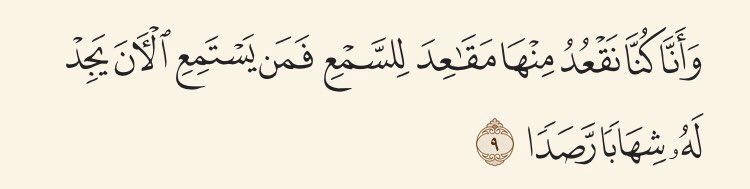 وَأَنَّا كُنَّا نَقْعُدُ مِنْهَا مَقَـٰعِدَ لِلسَّمْعِ فَمَن يَسْتَمِعِ ٱلْـَٔانَ يَجِدْ
لَهُۥ شِهَابًا رَّصَدًا ٩